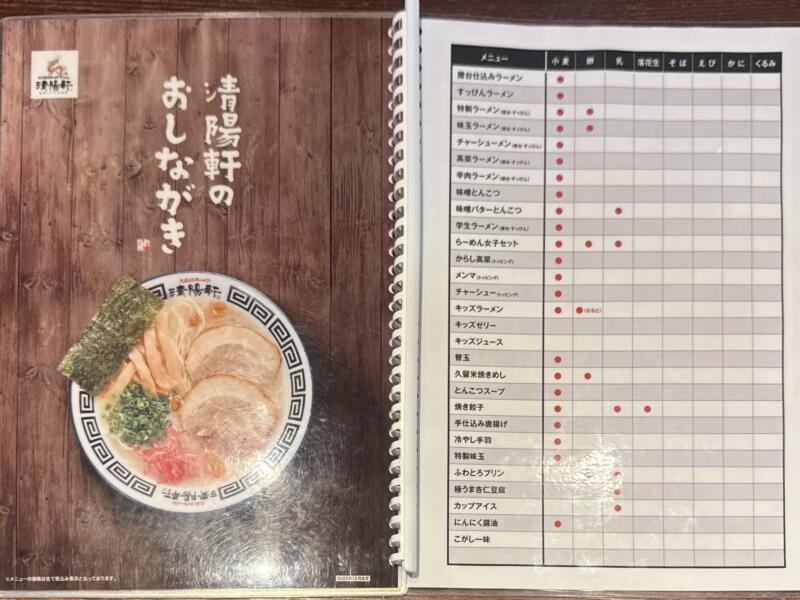 清陽軒
清陽軒の
おしながき
清陽軒
清陽軒
※メニューの価格は全て税込み表示となっております。
2022年12月改定
メニュー 小麦 卵 乳 落花生 そば えび かに くるみ
屋台仕込みラーメン
すっぴんラーメン
特製ラーメン(屋台・すっぴん)
味玉ラーメン(屋台・すっぴん)
チャーシューメン(屋台・すっぴん)
高菜ラーメン(屋台・すっぴん)
辛肉ラーメン(屋台・すっぴん)
味噌とんこつ
味噌バターとんこつ
学生ラーメン(屋台・すっぴん)
らーめん女子セット
からし高菜(トッピング)
メンマ(トッピング)
チャーシュー(トッピング)
キッズラーメン (なると)
キッズゼリー
キッズジュース
替玉
久留米焼きめし
とんこつスープ
焼き餃子
手仕込み唐揚げ
冷やし手羽
特製味玉
ふわとろプリン
極うま杏仁豆腐
カップアイス
にんにく醤油
こがし一味